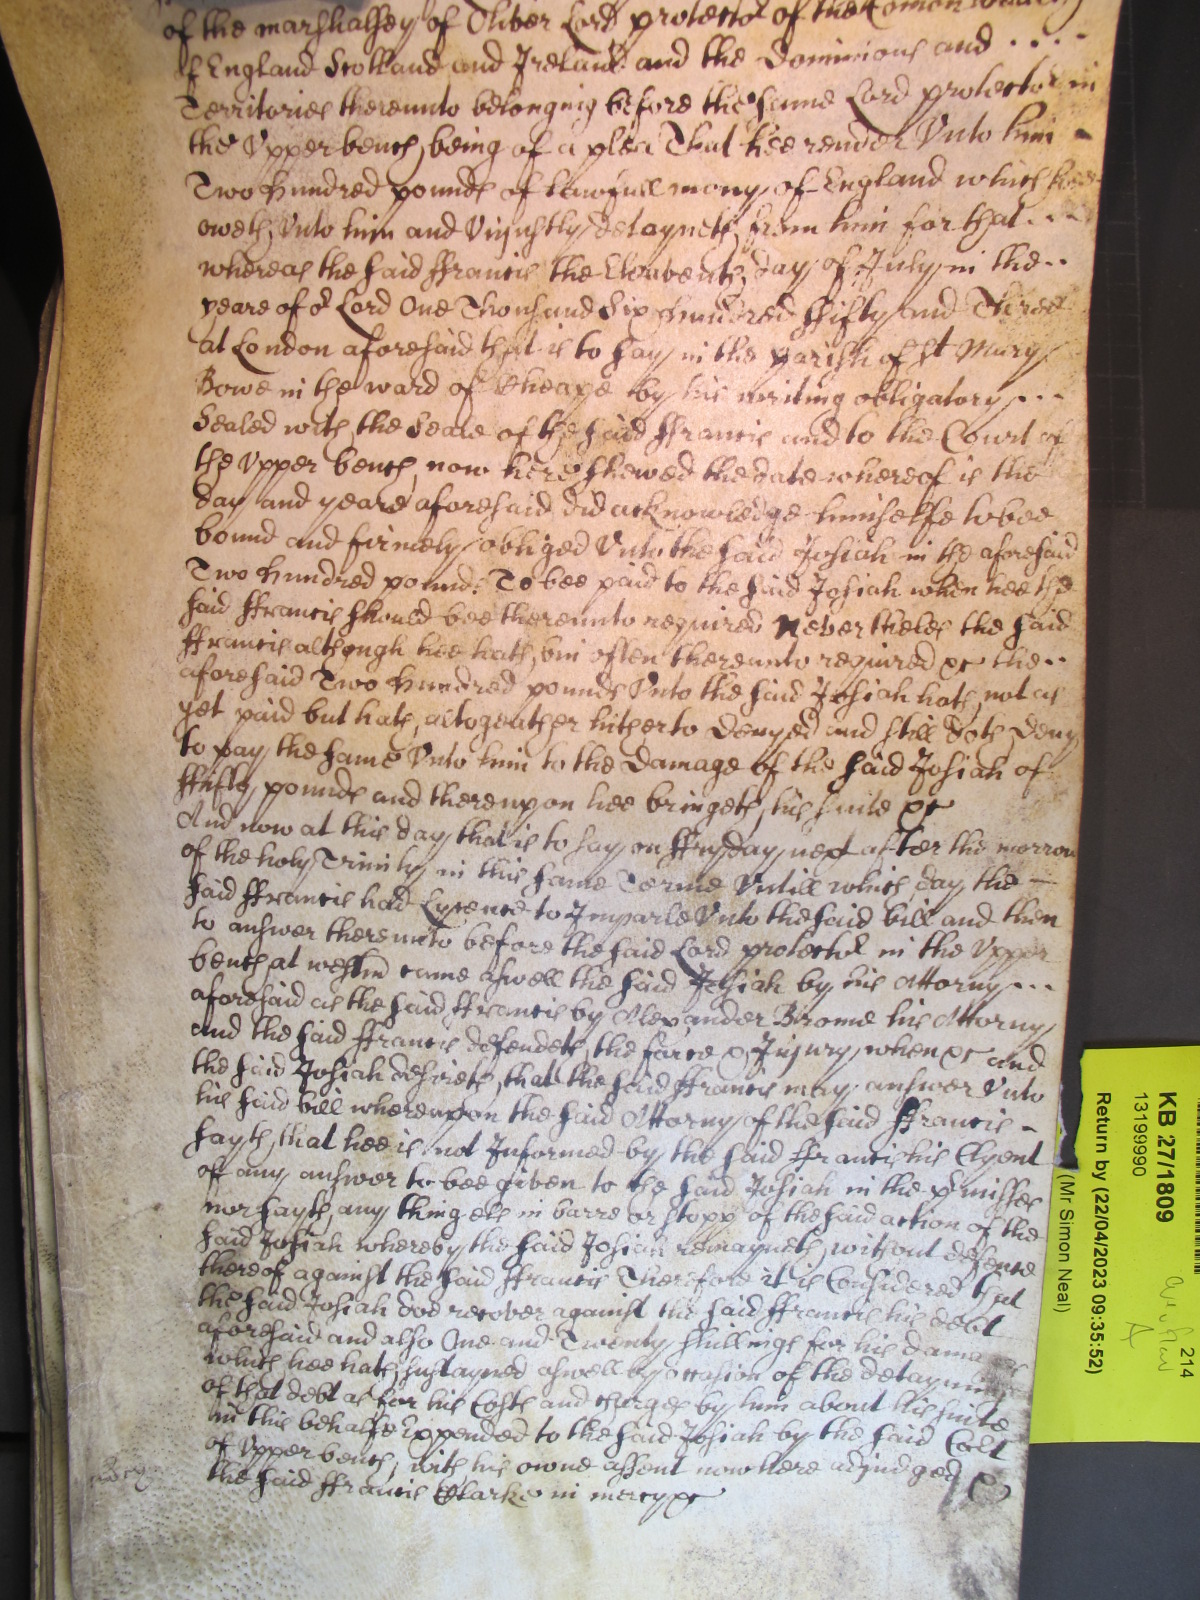 of the marshalsey of Oliver Lord protector of the Comon wealth
of England Scotland and Ireland and the Dominions and ....
Territories thereunto belonging before the same Lord protector in
the Vpper bench being of a plea That hee render Vnto him -
Two Hundred pounds of lawfull mony of England which hee
oweth Vnto him and Vniustly detayneth from him for that ...
whereas the said ffrancis the Eleaventh day of July in the ..
yeare of or Lord One Thousand Six Hundred ffifty and Three
at London aforesaid that is to say in the parish of St Mary
Bowe in the ward of Cheape by his writing obligatory ...
Sealed with the Seale of the said ffrancis and to the Court of
the Vpper bench now here shewed the date whereof is the
day and yeare aforesaid did acknowledge himselfe to bee
bound and firmely obliged Vnto the said Josiah in the aforesaid
Two Hundred pounds To bee paid to the said Josiah when hee the
said ffrancis should bee thereunto required Neverthelesse the said
ffrancis although hee hath bin often thereunto required &c the ..
aforesaid Two Hundred pounds Vnto the said Josiah hath not as
yet paid but hath altogeather hitherto Denyed and still doth Deny
to pay the same Vnto him to the Damage of the said Josiah of
ffifty pounds and thereupon hee bringeth his suite &c
And now at this day that is to say on ffryday next after the morrow
of the holy Trinity in this same Terme Vntill which day the -
said ffrancis had Lycence to Imparle Vnto the said bill and then
to answer thereunto before the said Lord protector in the Vpper
bench at westm came aswell the said Josiah by his Attorny ...
aforesaid as the said ffrancis by Alexander Brome his Attorny
and the said ffrancis defendeth the force & Injury when &c and
the said Josiah desireth that the said ffrancis may answer Vnto
his said bill whereupon the said Attorny of the said ffrancis -
sayth that hee is not Informed by the said ffrancis his Clyent
of any answer to bee given to the said Josiah in the prmisses
nor sayth any thing els in barre or stopp of the said action of the
said Josiah whereby the said Josiah remayneth without defence
thereof against the said ffrancis Therefore it is Considered that
the said Josiah doe recover against the said ffrancis his debt
aforesaid and also One and Twenty shillings for his damages
which hee hath sustayned aswell by occasion of the detayning
of that debt as for his Costs and charges by him about his suite
in this behalfe Expended to the said Josiah by the said Cort
of Vpper bench with his owne assent now here adjudged &
the said ffrancis Clarke in mercy &c
mercy
KB 27/1809
13199990
Return by (22/04/2023 09:35:52)
(Mr Simon Neal)
214